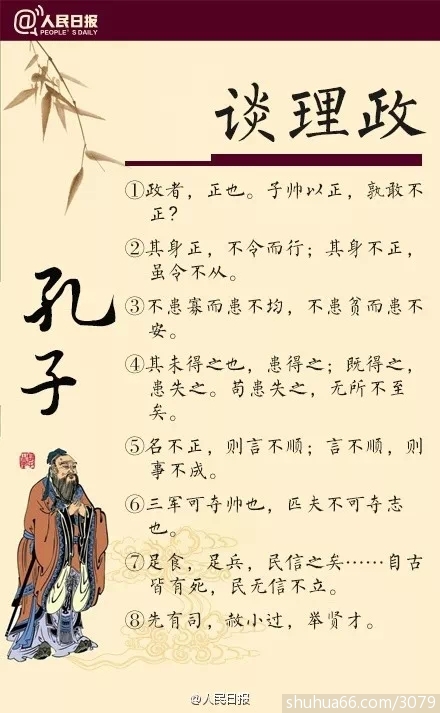 @人民日报
PEOPLE'S DAILY
谈理政
孔子
①政者，正也。子帅以正，孰敢不
正？
②其身正，不令而行；其身不正，
虽令不从。
③不患寡而患不均，不患贫而患不
安。
④其未得之也，患得之；既得之，
患失之。苟患失之，无所不至
矣。
⑤名不正，则言不顺；言不顺，则
事不成。
⑥三军可夺帅也，匹夫不可夺志
也。
⑦足食，足兵，民信之矣……自古
皆有死，民无信不立。
⑧先有司，赦小过，举贤才。
@人民日报
shuhua66.com/3079